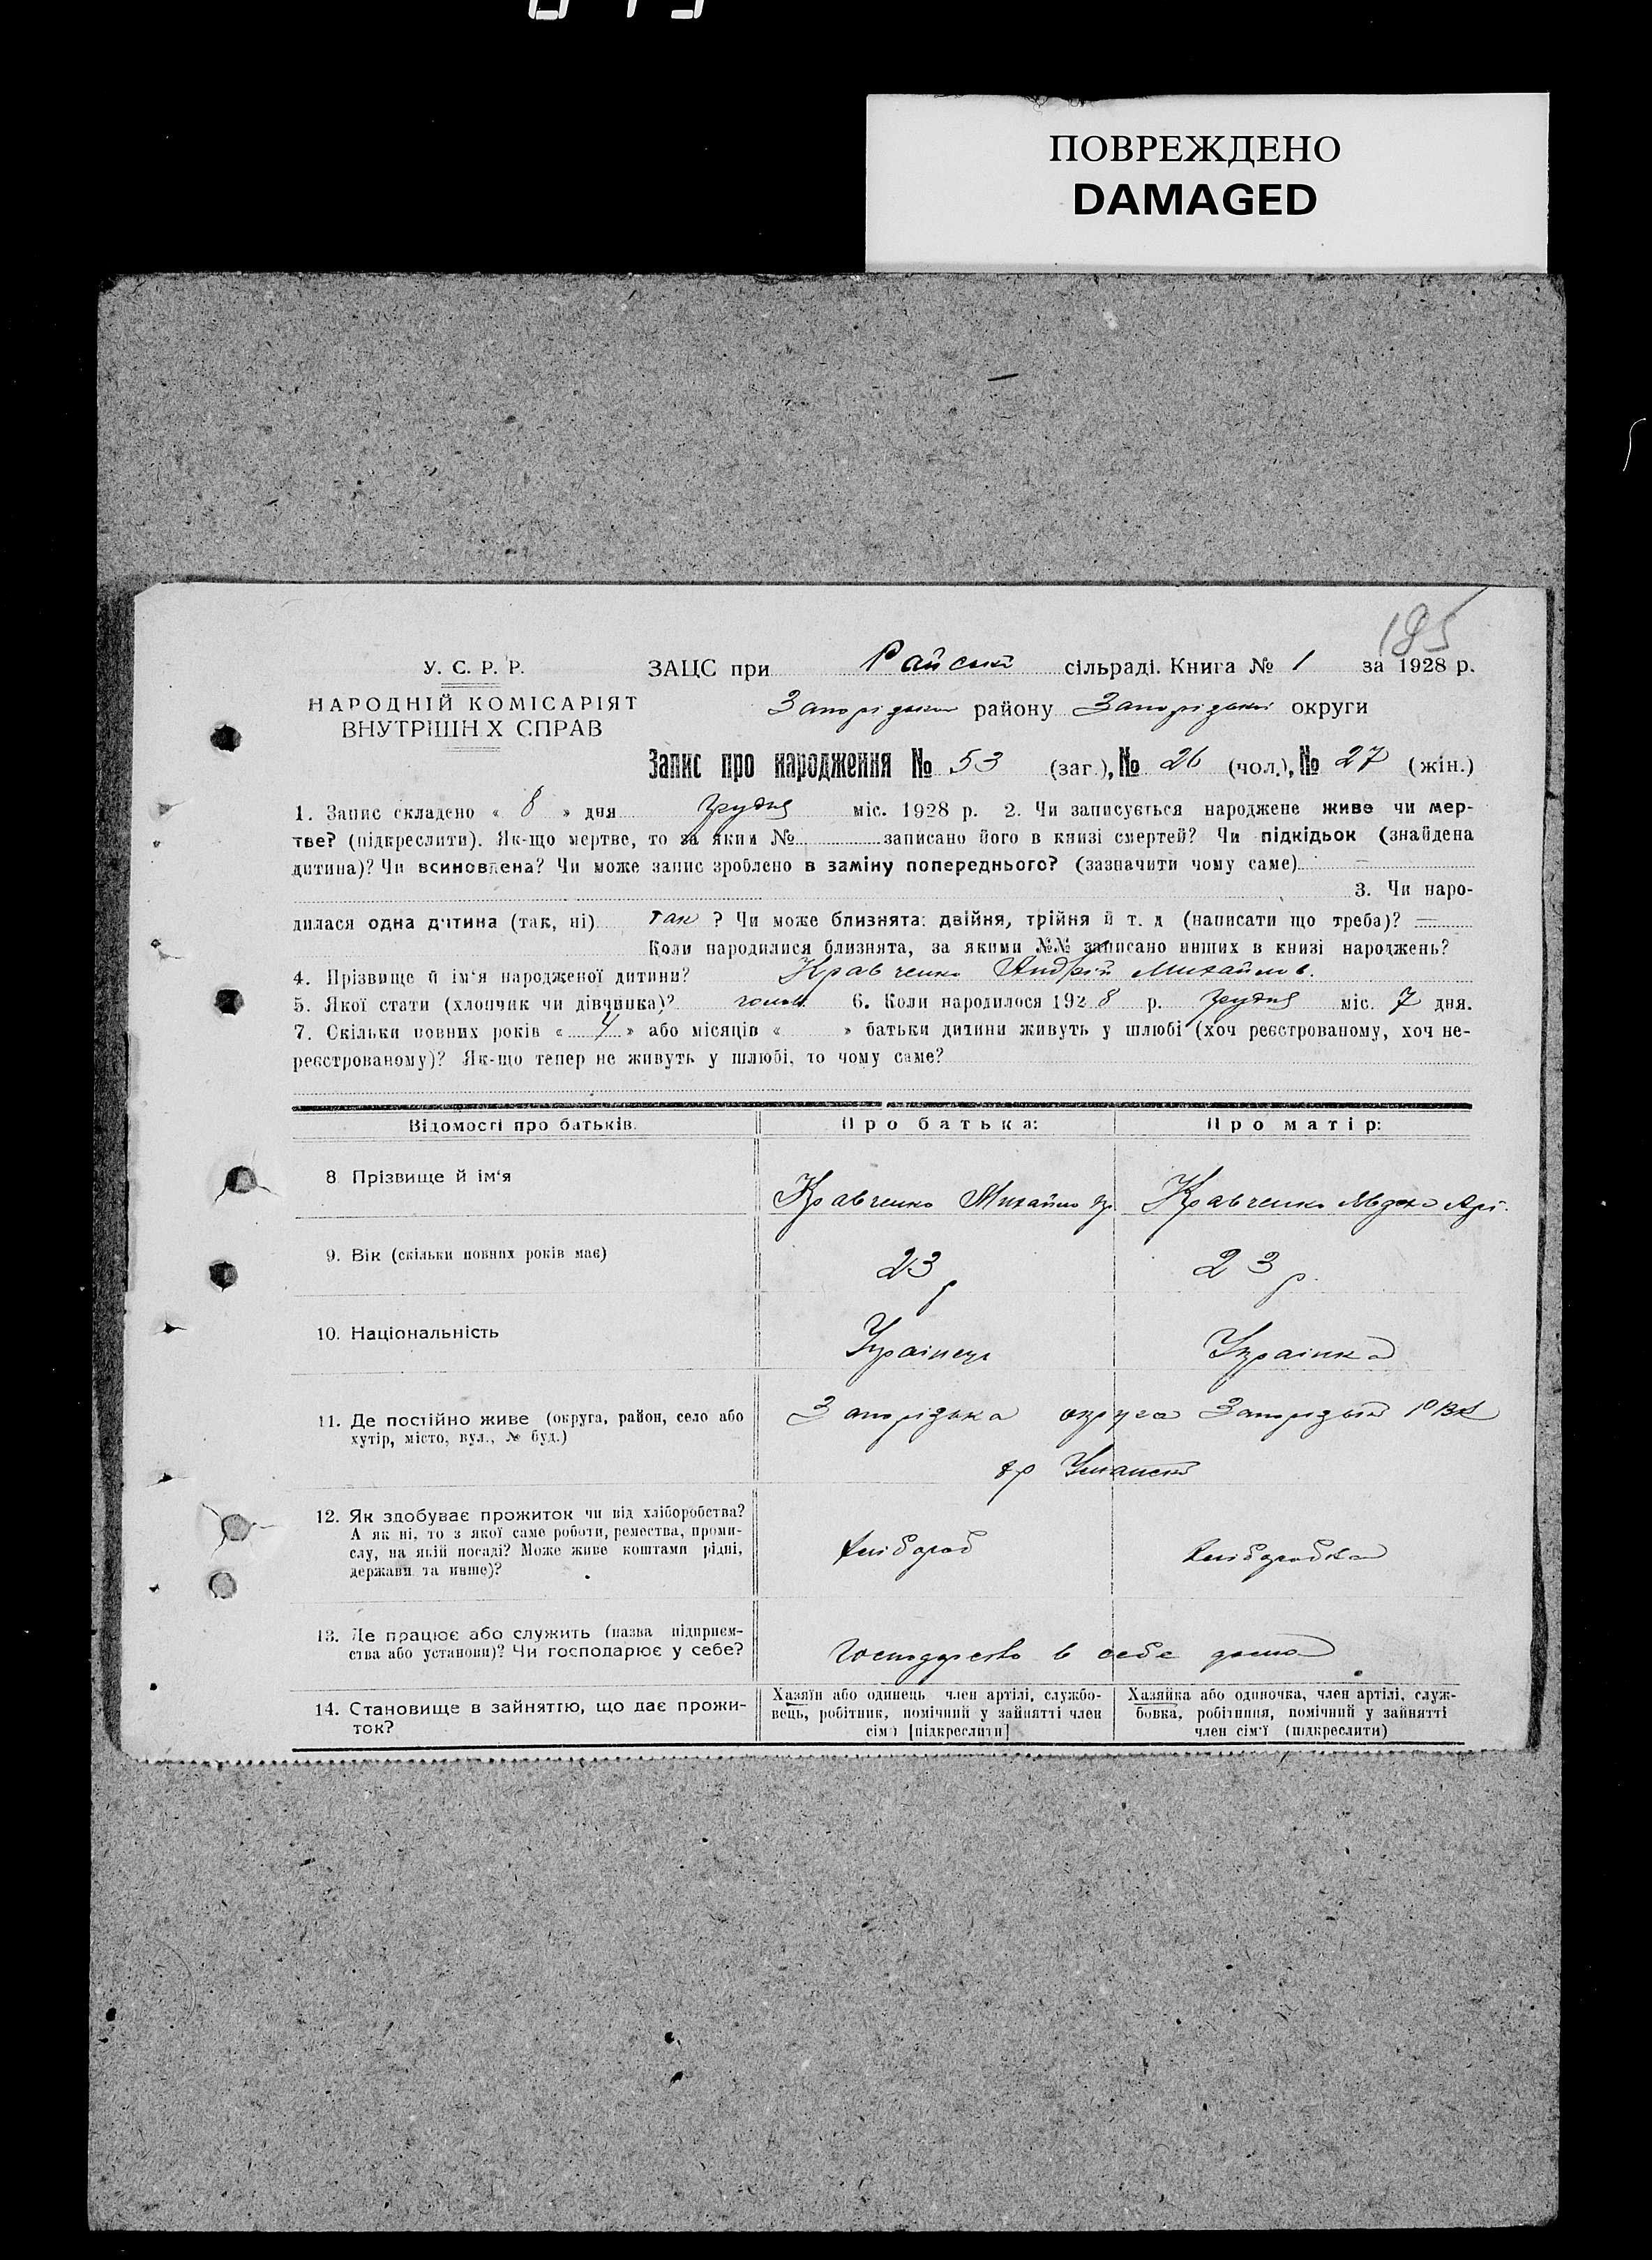 ПОВРЕЖДЕНО
DAMAGED
185
У. С. Р. Р.
НАРОДНІЙ КОМІСАРІЯТ
ВНУТРІШН Х СПРАВ
ЗАЦС при Райські сільраді. Книга № 1 за 1928 р.
Запорізьки району Запорізькі округи
Запис про народження № 53 (заг.), № 26 (чол.), № 27 (жін.)
1. Запис складено « 8 » дня Грудня міс. 1928 р. 2. Чи записується народжене живе чи мер-
тве? (підкреслити). Як-що мертве, то за яким № записано його в книзі смертей? Чи підкідьок (знайдена
дитина)? Чи всиновлена? Чи може запис зроблено в заміну попереднього? (зазначити чому саме)
3. Чи наро-
дилася одна дитина (так, ні) так ? Чи може близнята: двійня, трійня й т. д (написати що треба)?
Коли народилися близнята, за якими №№ записано инших в книзі народжень?
4. Прізвище й ім'я народженої дитини? Кравченко Андрій Михайлов.
5. Якої стати (хлопчик чи дівчинка)? 6. Коли народилося 1928 р. Грудня міс. 7 дня.
7. Скільки повних років « 4 » або місяців « » батьки дитини живуть у шлюбі (хоч реєстрованому, хоч не-
реєстрованому)? Як-що тепер не живуть у шлюбі, то чому саме?
Відомості про батьків. Про батька: Про матір:
8 Прізвище й ім'я Кравченко Михайло Кравченко Явдоха
9. Вік (скільки повних років має) 23 р 23 р.
10. Національність Українець Українка
11. Де постійно живе (округа, район, село або
хутір, місто, вул., № буд.)
Запорізька округа Запорізький РВК
Уманські
12. Як здобуває прожиток чи від хліборобства?
А як ні, то з якої саме роботи, ремества, проми-
слу, на якій посаді? Може живе коштами рідні,
держави та инше)?
Хлібороб Хлібородка
13. Де працює або служить (назва підприєм-
ства або установи)? Чи господарює у себе?
Господарство в себе дома
14. Становище в зайняттю, що дає прожи-
ток?
Хазяїн або одинець член артілі, службо-
вець, робітник, помічний у зайнятті член
сім'ї [підкреслити]
Хазяйка або одиночка, член артілі, служ-
бовка, робітниця, помічний у зайнятті
член сім'ї (підкреслити)